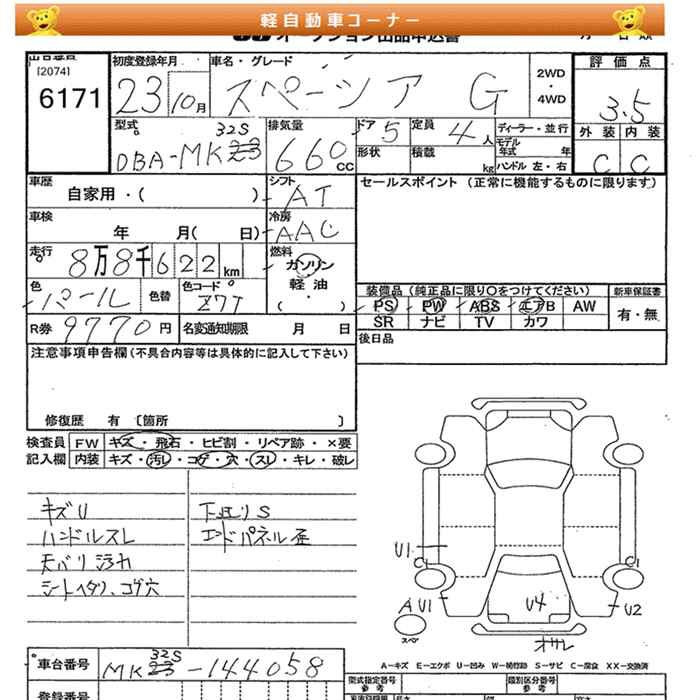 軽自動車コーナー
[2074]
6171
初度登録年月
23 10月
車名・グレード
スペーシア G
2WD
・
4WD
評価点
3.5
外装 内装
C C
型式
32S
DBA-MK23
排気量
660 CC
ドア 5
定員 4人
形状
積載 kg
ディーラー・並行
モデル年式 年
ハンドル 左・右
車歴
自家用・( )
シフト AT
セールスポイント (正常に機能するものに限ります)
車検
年 月( 日)
冷房 AAC
走行
8万8千622km
燃料
ガソリン
軽・油
( )
色
パール
色替
色コード
Z7T
装備品 (純正品に限り○をつけてください)
新車保証書
PS PW ABS エアB AW
有・無
SR ナビ TV カワ
R券 9770円
名変通知期限 月 日
後日品
注意事項申告欄(不具合内容等は具体的に記入して下さい)
修復歴 有 〔箇所 〕
検査員
記入欄
FW キズ・飛石・ヒビ割・リペア跡・×要
内装 キズ・汚レ・コゲ・穴・スレ・キレ・破レ
キズU
ハンドルスレ
天バリ汚れ
シートヘタリ、コゲ穴
下廻りS
エンドパネル歪
U1
C1
C1
A U1
U4
U2
スペア
オサレ
A-キズ E-エクボ U-凹み W-補修跡 S-サビ C-腐食 XX-交換済
車台番号
32S
MK23-144058
型式指定番号
参考
類別区分番号
参考
登録番号